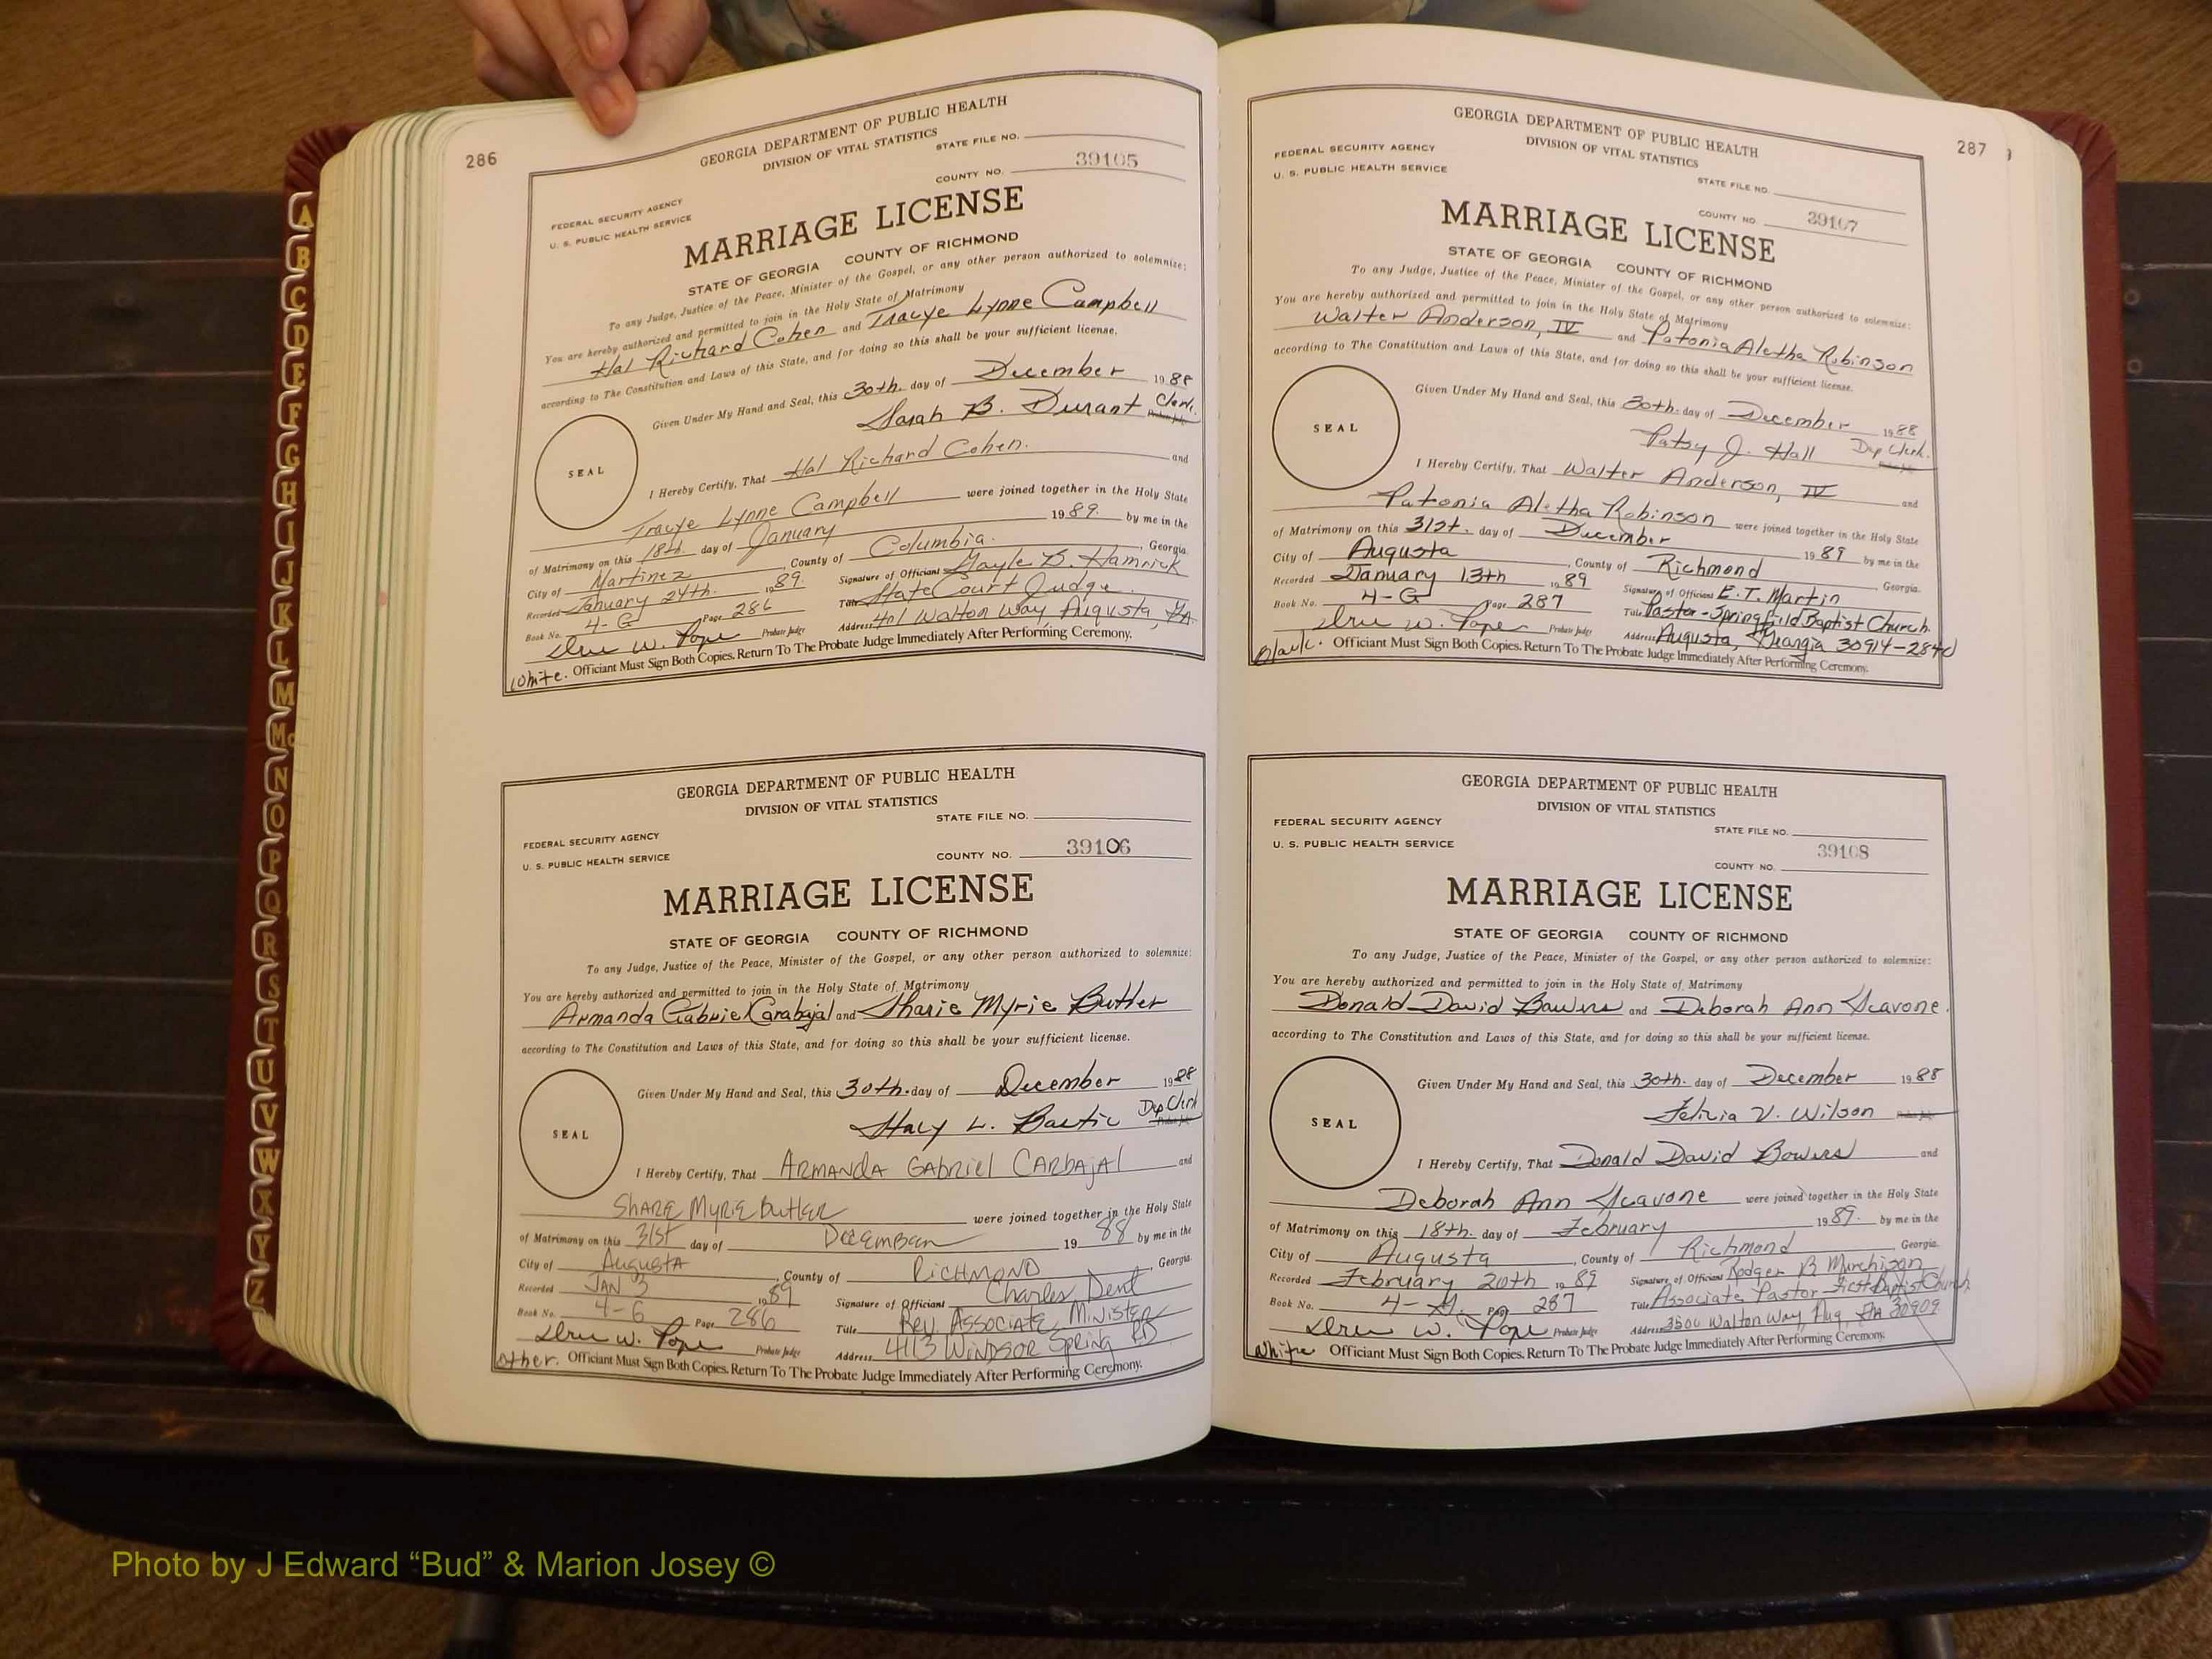 286
GEORGIA DEPARTMENT OF PUBLIC HEALTH
DIVISION OF VITAL STATISTICS
STATE FILE NO.
39105
COUNTY NO.
FEDERAL SECURITY AGENCY
U. S. PUBLIC HEALTH SERVICE
MARRIAGE LICENSE
STATE OF GEORGIA COUNTY OF RICHMOND
To any Judge, Justice of the Peace, Minister of the Gospel, or any other person authorized to solemnize:
You are hereby authorized and permitted to join in the Holy State of Matrimony
Hal Richard Cohen and Tracye Lynne Campbell
according to The Constitution and Laws of this State, and for doing so this shall be your sufficient license.
Given Under My Hand and Seal, this 30th. day of December 1988
Sarah B. Durant Clerk.
SEAL
I Hereby Certify, That Hal Richard Cohen. and
Tracye Lynne Campbell were joined together in the Holy State
of Matrimony on this 18th. day of January 1989. by me in the
City of Martinez, County of Columbia., Georgia.
Recorded January 24th. 1989. Signature of Officiant Gayle B. Hamrick
Book No. 4-G Page 286 Title State Court Judge
Drew W. Pope Probate Judge Address 401 Walton Way Augusta, GA.
White. Officiant Must Sign Both Copies. Return To The Probate Judge Immediately After Performing Ceremony.
GEORGIA DEPARTMENT OF PUBLIC HEALTH
DIVISION OF VITAL STATISTICS
STATE FILE NO.
FEDERAL SECURITY AGENCY
COUNTY NO. 39106
U. S. PUBLIC HEALTH SERVICE
MARRIAGE LICENSE
STATE OF GEORGIA COUNTY OF RICHMOND
To any Judge, Justice of the Peace, Minister of the Gospel, or any other person authorized to solemnize:
You are hereby authorized and permitted to join in the Holy State of Matrimony
Armanda Gabriel Carabajal and Sharie Myrie Butler
according to The Constitution and Laws of this State, and for doing so this shall be your sufficient license.
Given Under My Hand and Seal, this 30th. day of December 1988
Stacy L. Bastic Dep Clerk
SEAL
I Hereby Certify, That ARMANDA GABRIEL CARBAJAL and
SHARE MYRIE BUTLER were joined together in the Holy State
of Matrimony on this 31st day of December 1988 by me in the
City of Augusta, County of RICHMOND, Georgia.
Recorded JAN 3 1989 Signature of Officiant Charles Dent
Book No. 4-6 Page 286 Title Rev. ASSOCIATE MINISTER
Drew W. Pope Probate Judge Address 4113 WINDSOR Spring RD
Other. Officiant Must Sign Both Copies. Return To The Probate Judge Immediately After Performing Ceremony.
287
GEORGIA DEPARTMENT OF PUBLIC HEALTH
DIVISION OF VITAL STATISTICS
FEDERAL SECURITY AGENCY
U. S. PUBLIC HEALTH SERVICE
STATE FILE NO.
COUNTY NO. 39107
MARRIAGE LICENSE
STATE OF GEORGIA COUNTY OF RICHMOND
To any Judge, Justice of the Peace, Minister of the Gospel, or any other person authorized to solemnize:
You are hereby authorized and permitted to join in the Holy State of Matrimony
Walter Anderson, IV and Patonia Aletha Robinson
according to The Constitution and Laws of this State, and for doing so this shall be your sufficient license.
Given Under My Hand and Seal, this 30th. day of December 1988
Patsy J. Hall Dep Clerk.
SEAL
I Hereby Certify, That Walter Anderson, IV and
Patonia Aletha Robinson were joined together in the Holy State
of Matrimony on this 31st. day of December 1989 by me in the
City of Augusta, County of Richmond, Georgia.
Recorded January 13th 1989 Signature of Officiant E.T. Martin
Book No. 4-G Page 287 Title Pastor-Springfield Baptist Church.
Drew W. Pope Probate Judge Address Augusta, Georgia 30914-2840
Black. Officiant Must Sign Both Copies. Return To The Probate Judge Immediately After Performing Ceremony.
GEORGIA DEPARTMENT OF PUBLIC HEALTH
DIVISION OF VITAL STATISTICS
FEDERAL SECURITY AGENCY
STATE FILE NO.
U. S. PUBLIC HEALTH SERVICE
39108
COUNTY NO.
MARRIAGE LICENSE
STATE OF GEORGIA COUNTY OF RICHMOND
To any Judge, Justice of the Peace, Minister of the Gospel, or any other person authorized to solemnize:
You are hereby authorized and permitted to join in the Holy State of Matrimony
Donald David Bowers and Deborah Ann Scavone.
according to The Constitution and Laws of this State, and for doing so this shall be your sufficient license.
Given Under My Hand and Seal, this 30th. day of December 1988
Felicia V. Wilson
SEAL
I Hereby Certify, That Donald David Bowers and
Deborah Ann Scavone were joined together in the Holy State
of Matrimony on this 18th. day of February 1989. by me in the
City of Augusta, County of Richmond, Georgia.
Recorded February 20th 1989 Signature of Officiant Rodger B Murchison
Book No. 4- Page 287 Title Associate Pastor-First Baptist Church
Drew W. Pope Probate Judge Address 3500 Walton Way, Aug, GA 30909
White Officiant Must Sign Both Copies. Return To The Probate Judge Immediately After Performing Ceremony.
A
B
C
D
E
F
G
H
I
J
K
L
M
Mc
N
O
P
Q
R
S
T
U
V
W
X
Y
Z
Photo by J Edward “Bud” & Marion Josey ©